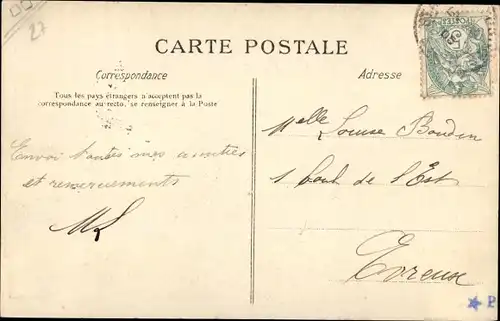 27
CARTE POSTALE
Correspondance
Adresse
Tous les pays étrangers n'acceptent pas la
correspondance au recto, se renseigner à la Poste
Envoi toutes mes amitiés
et remerciements
Melle Louise Boudin
1 Boul de l'Est
Evreux
P